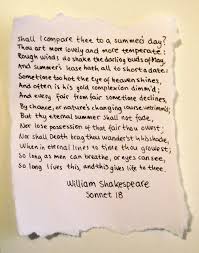 Shall I compare thee to a summer's day?
Thou art more lovely and more temperate:
Rough winds do shake the darling buds of May,
And summer's lease hath all to short a date:
Sometime to hot the eye of heaven shines,
And often is his gold complexion dimm'd;
And every fair from fair sometime declines,
By chance, or nature's changing course, untrimm'd;
But thy eternal summer shall not fade,
Nor lose possession of that fair thou owest;
Nor shall Death brag thou wander'st in his shade,
When in eternal lines to time thou growest;
So long as men can breathe, or eyes can see,
So long lives this, and this gives life to thee.
William Shakespeare
Sonnet 18